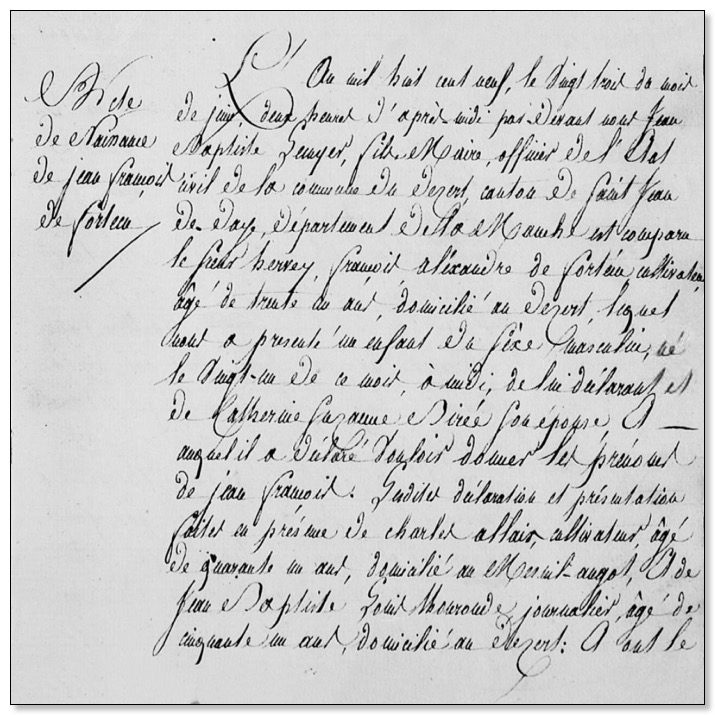 Acte
de Naissance
de jean françois
de fortecu
L'An mil huit cent neuf, le vingt trois du mois
de juin deux heures d'après midi par devant nous Jean
Baptiste fils Maire, officier de l'Etat
civil de la commune du dezert, canton de Saint Jean
de daye, département de la Manche est comparu
le sieur hervey, françois aléxandre de fortécu cultivateur
âgé de trente un ans, domicilié au dezert lequel
nous a presenté un enfant du sèxe masculin, né
le vingt-un de ce mois, à midi, de lui déclarant et
de Catherine Suzanne son épouse, Et
auquel il a déclaré vouloir donner les prénoms
de jean françois. Lesdites déclaration et présentation
faites en présence de charles allain, cultivateur, âgé
de quarante un ans, domicilié au Mesnil-angot, Et de
Jean Baptiste Louis journalier, âgé de
cinquante un ans, domicilié au dezert: Et ont le